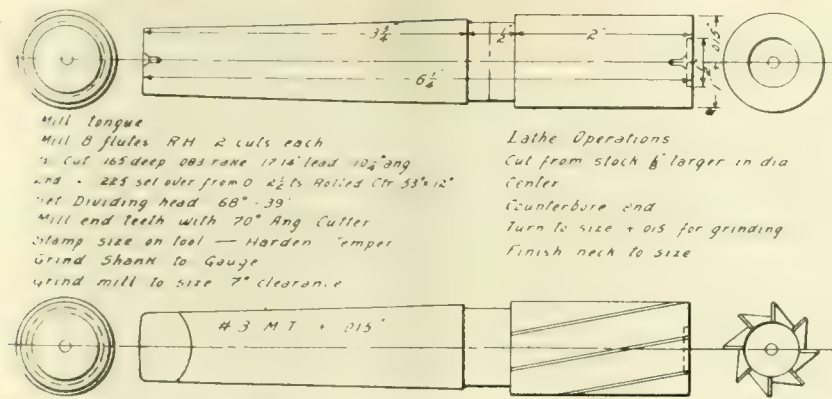 3 3/4
1/2"
2"
6 1/4
1/2
1" + .015"
Mill tongue
Mill 8 flutes RH 2 cuts each
Cut 165 deep 083 rake 17 14" lead 10 1/4° ang
2nd " 225 set over from 0 Rolled Ctr 53° 12°
Set Dividing head 68° - 39'
Mill end teeth with 70° Ang Cutter
Stamp size on tool — Harden Temper
Grind Shank to Gauge
Grind mill to size 7° clearance
Lathe Operations
Cut from stock larger in dia
Center
Counterbore end
Turn to size + 015 for grinding
Finish neck to size
# 3 M T + .015"